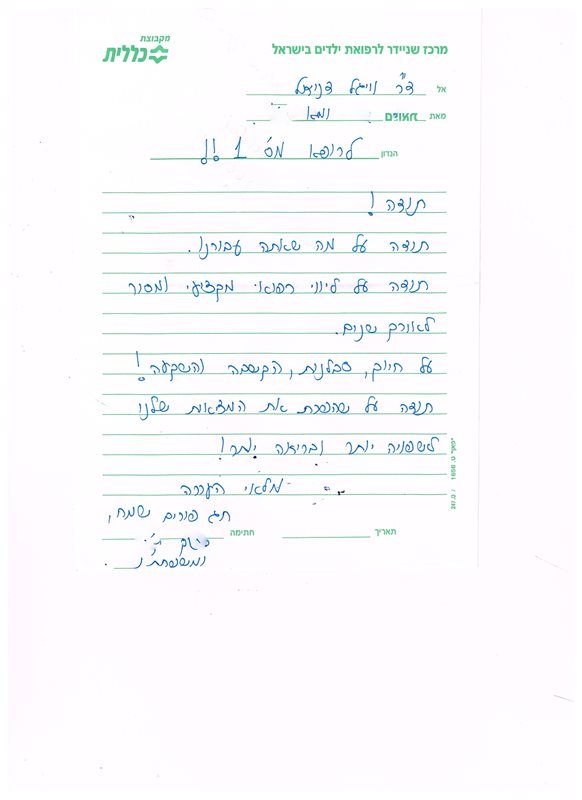 מקבוצת
כללית
מרכז שניידר לרפואת ילדים בישראל
אל ד"ר ווייגל דניאל
מאת
הנדון לרופא מס' 1 !!
תודה!
תודה על מה שאתה עבורנו.
תודה על ליווי רפואי מקצועי ומסור
לאורך שנים.
על חיוך, סבלנות, הקשבה והשקעה!
תודה על שהפכת את המציאות שלנו
לשפויה יותר ובריאה יותר!
מלאי הערכה
חג פורים שמח,
תאריך חתימה